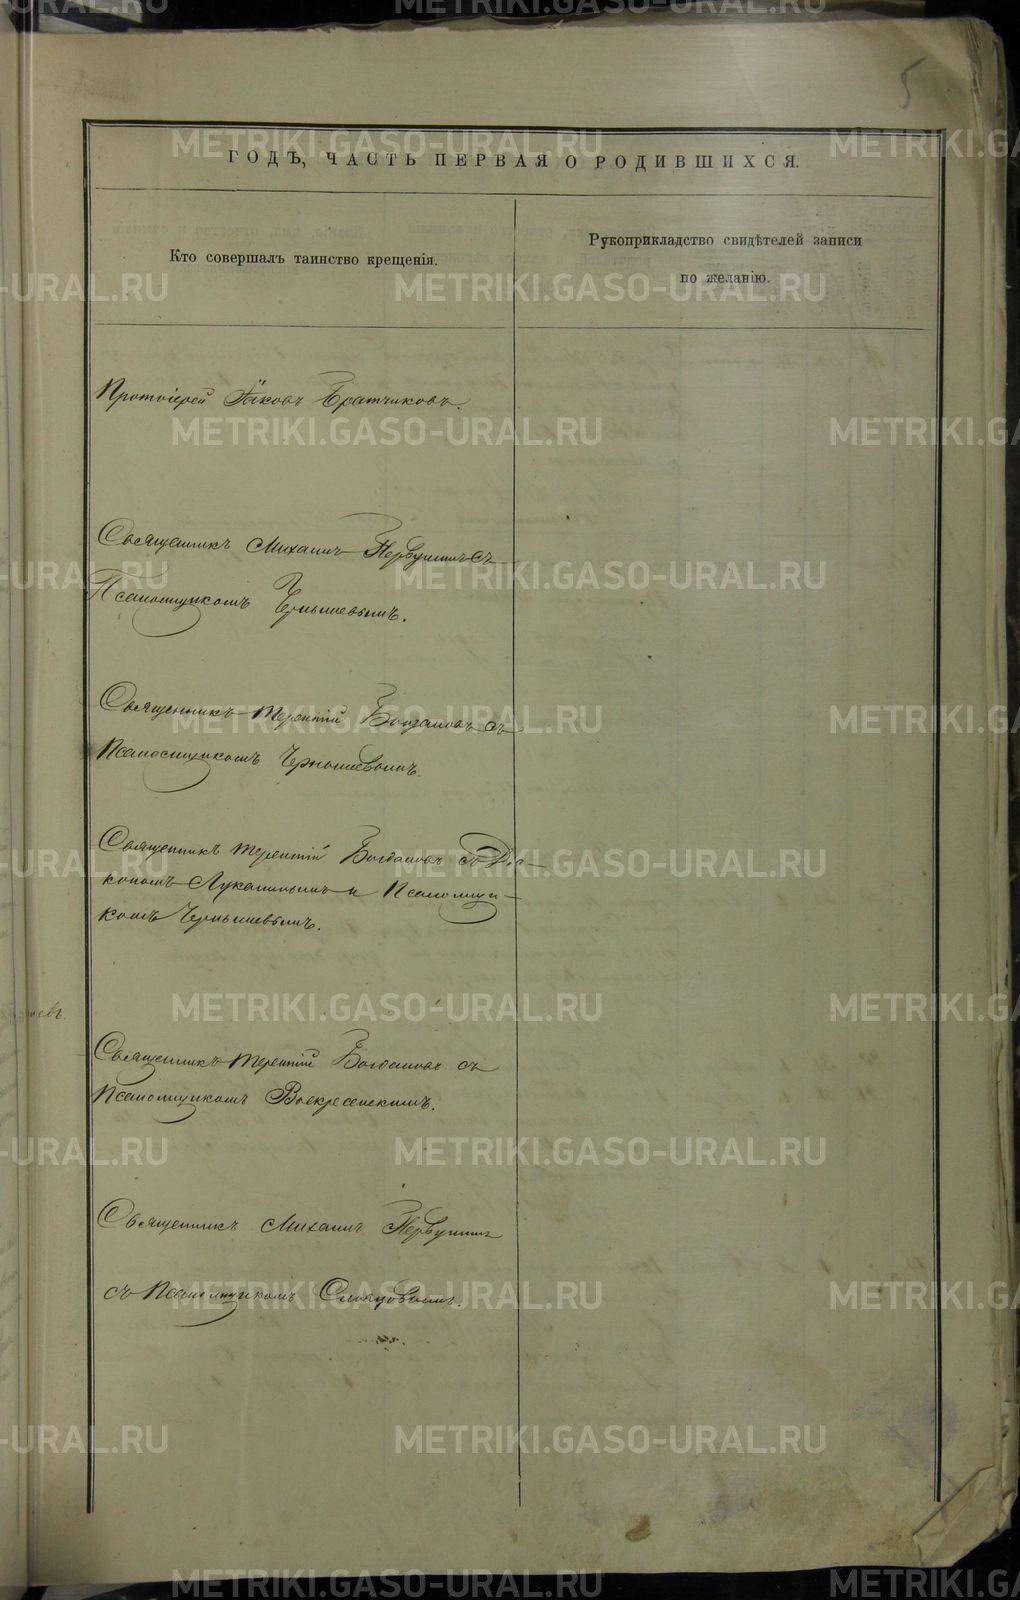 5
ГОДЪ, ЧАСТЬ ПЕРВАЯ О РОДИВШИХСЯ.
Кто совершалъ таинство крещенія.
Рукоприкладство свидѣтелей записи
по желанію.
Протоіерей Іаковъ Братчиковъ.
Священникъ Михаилъ Первушинъ съ
Псаломщикомъ Чернышевымъ.
Священникъ Терентій Богдановъ съ
Псаломщикомъ Чернышевымъ.
Священникъ Терентій Богдановъ съ Діа-
кономъ Лукинымъ и Псаломщи-
комъ Чернышевымъ.
Священникъ Терентій Богдановъ съ
Псаломщикомъ Воскресенскимъ.
Священникъ Михаилъ Первушинъ
съ Псаломщикомъ Словцовымъ.
METRIKI.GASO-URAL.RU